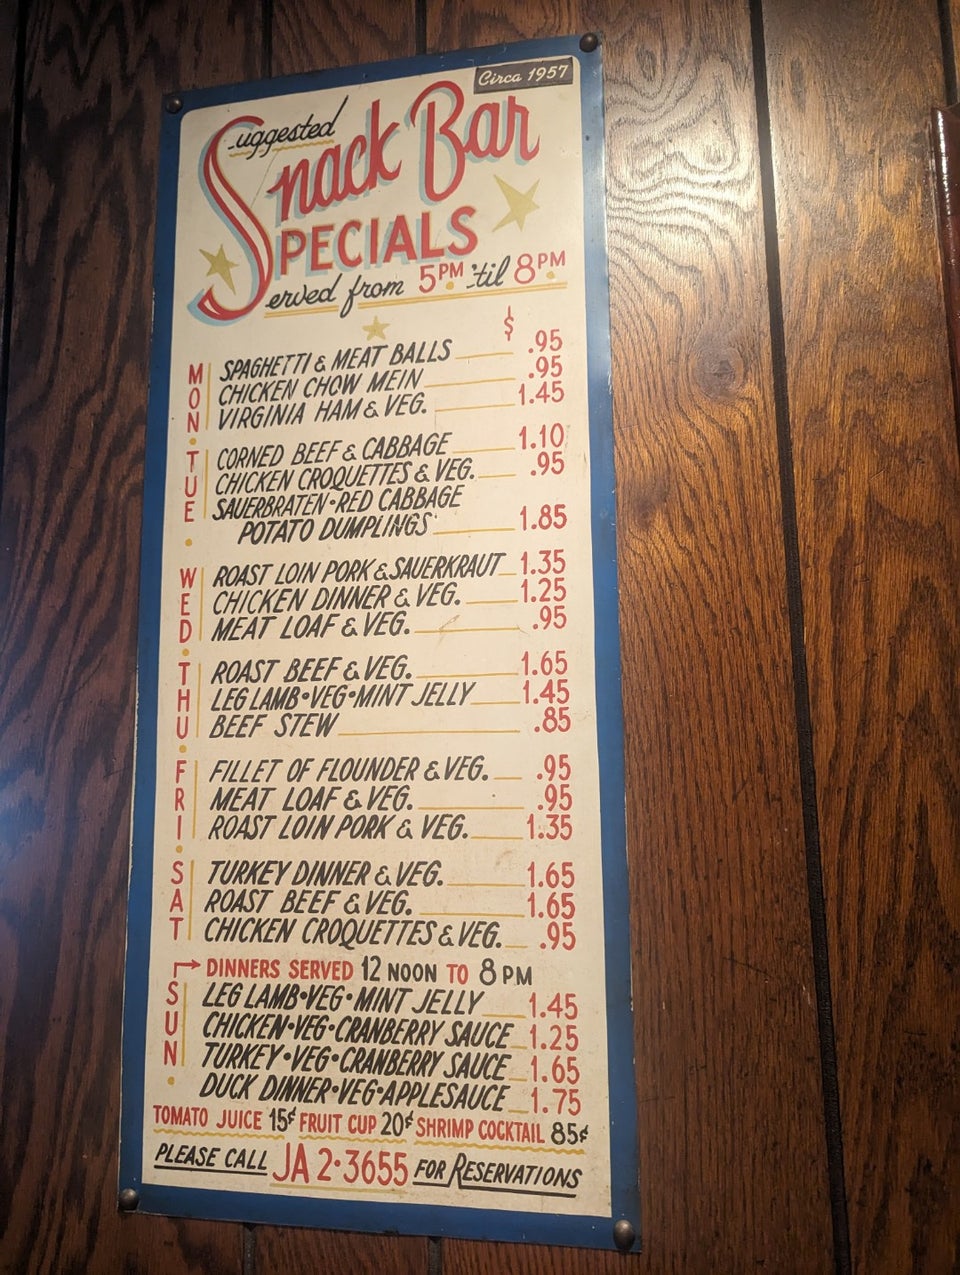 Circa 1957
Suggested
Snack Bar
SPECIALS
Served from 5PM 'til 8PM
$
MON
SPAGHETTI & MEAT BALLS .95
CHICKEN CHOW MEIN .95
VIRGINIA HAM & VEG. 1.45
TUE
CORNED BEEF & CABBAGE 1.10
CHICKEN CROQUETTES & VEG. .95
SAUERBRATEN • RED CABBAGE
POTATO DUMPLINGS 1.85
WED
ROAST LOIN PORK & SAUERKRAUT 1.35
CHICKEN DINNER & VEG. 1.25
MEAT LOAF & VEG. .95
THU
ROAST BEEF & VEG. 1.65
LEG LAMB • VEG • MINT JELLY 1.45
BEEF STEW .85
FRI
FILLET OF FLOUNDER & VEG. .95
MEAT LOAF & VEG. .95
ROAST LOIN PORK & VEG. 1.35
SAT
TURKEY DINNER & VEG. 1.65
ROAST BEEF & VEG. 1.65
CHICKEN CROQUETTES & VEG. .95
SUN
→ DINNERS SERVED 12 NOON TO 8 PM
LEG LAMB • VEG • MINT JELLY 1.45
CHICKEN • VEG • CRANBERRY SAUCE 1.25
TURKEY • VEG • CRANBERRY SAUCE 1.65
DUCK DINNER • VEG • APPLESAUCE 1.75
TOMATO JUICE 15¢ FRUIT CUP 20¢ SHRIMP COCKTAIL 85¢
PLEASE CALL JA 2•3655 FOR RESERVATIONS